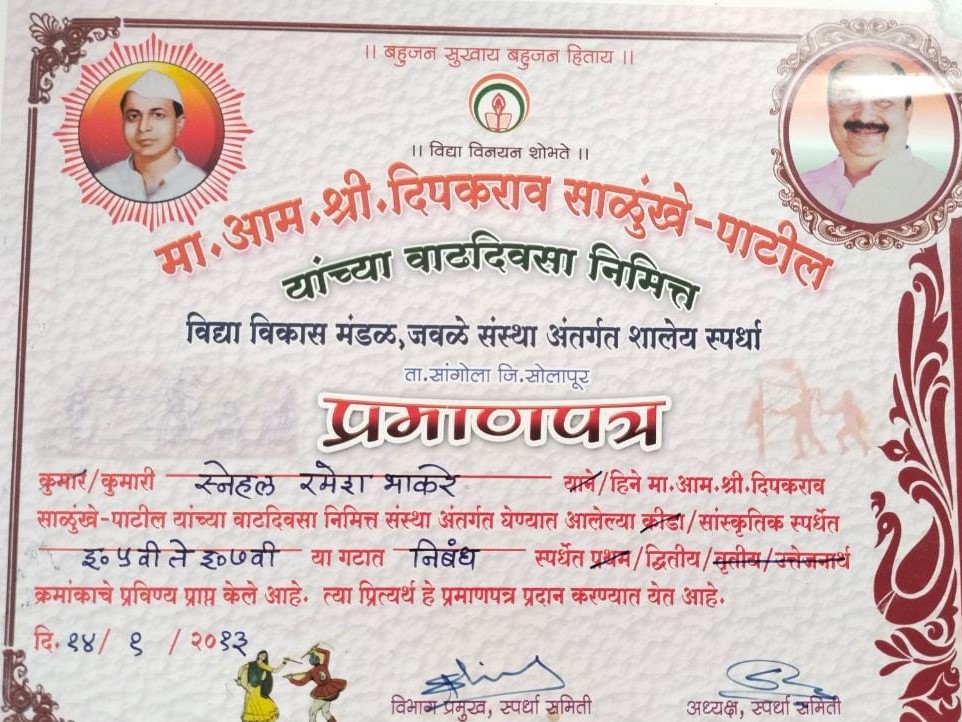 ।। बहुजन सुखाय बहुजन हिताय ।।
।। विद्या विनयन शोभते ।।
मा.आम.श्री.दिपकराव साळुंखे-पाटील
यांच्या वाढदिवसा निमित्त
विद्या विकास मंडळ,जवळे संस्था अंतर्गत शालेय स्पर्धा
ता.सांगोला जि.सोलापूर
प्रमाणपत्र
कुमार/कुमारी स्नेहल रमेश भाकरे याने/हिने मा.आम.श्री.दिपकराव
साळुंखे-पाटील यांच्या वाढदिवसा निमित्त संस्था अंतर्गत घेण्यात आलेल्या क्रीडा/सांस्कृतिक स्पर्धेत
इ०५वी ते इ०७वी या गटात निबंध स्पर्धेत प्रथम/द्वितीय/तृतीय/उत्तेजनार्थ
क्रमांकाचे प्रविण्य प्राप्त केले आहे. त्या प्रित्यर्थ हे प्रमाणपत्र प्रदान करण्यात येत आहे.
दि. १४/ १ / २०१३
विभाग प्रमुख, स्पर्धा समिती अध्यक्ष, स्पर्धा समिती